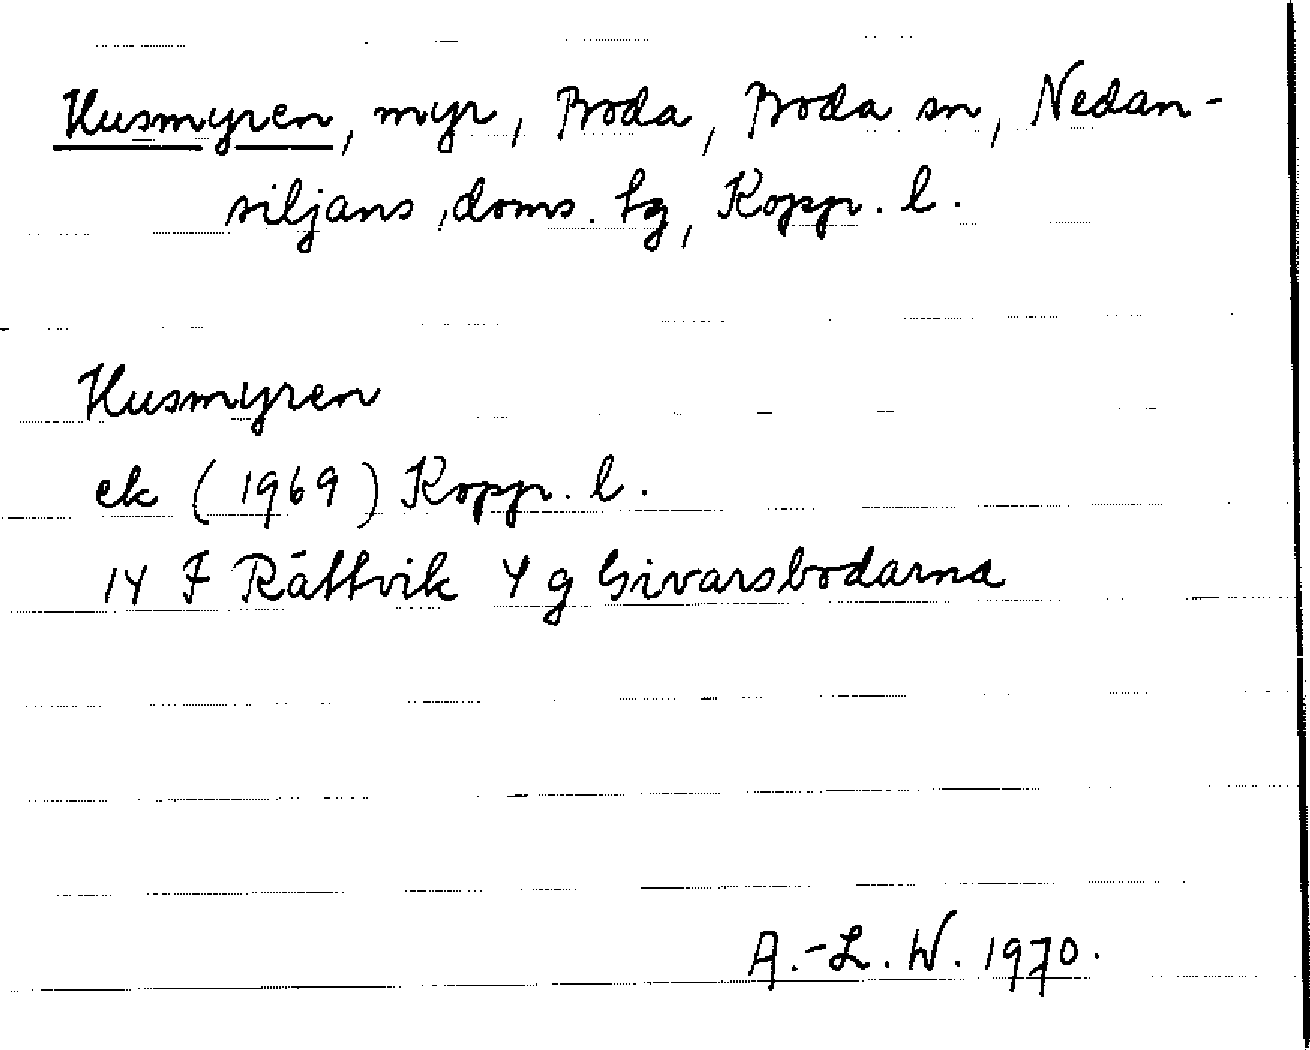 Husmyren, myr, Boda, Boda sn, Nedan-
siljans doms. tg, Kopp. l.
Husmyren
ek (1969) Kopp. l.
14 F Rättvik 4 g Sivarsbodarna
A.-L. W. 1970.